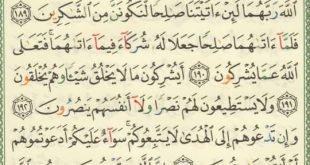 ٱللَّهَ رَبَّهُمَا لَئِنۡ ءَاتَيۡتَنَا صَٰلِحٗا لَّنَكُونَنَّ مِنَ ٱلشَّٰكِرِينَ ١٨٩
فَلَمَّآ ءَاتَىٰهُمَا صَٰلِحٗا جَعَلَا لَهُۥ شُرَكَآءَ فِيمَآ ءَاتَىٰهُمَاۚ فَتَعَٰلَى
ٱللَّهُ عَمَّا يُشۡرِكُونَ ١٩٠ أَيُشۡرِكُونَ مَا لَا يَخۡلُقُ شَيۡـٔٗا وَهُمۡ يُخۡلَقُونَ
١٩١ وَلَا يَسۡتَطِيعُونَ لَهُمۡ نَصۡرٗا وَلَآ أَنفُسَهُمۡ يَنصُرُونَ ١٩٢
وَإِن تَدۡعُوهُمۡ إِلَى ٱلۡهُدَىٰ لَا يَتَّبِعُوكُمۡۚ سَوَآءٌ عَلَيۡكُمۡ أَدَعَوۡتُمُوهُمۡ